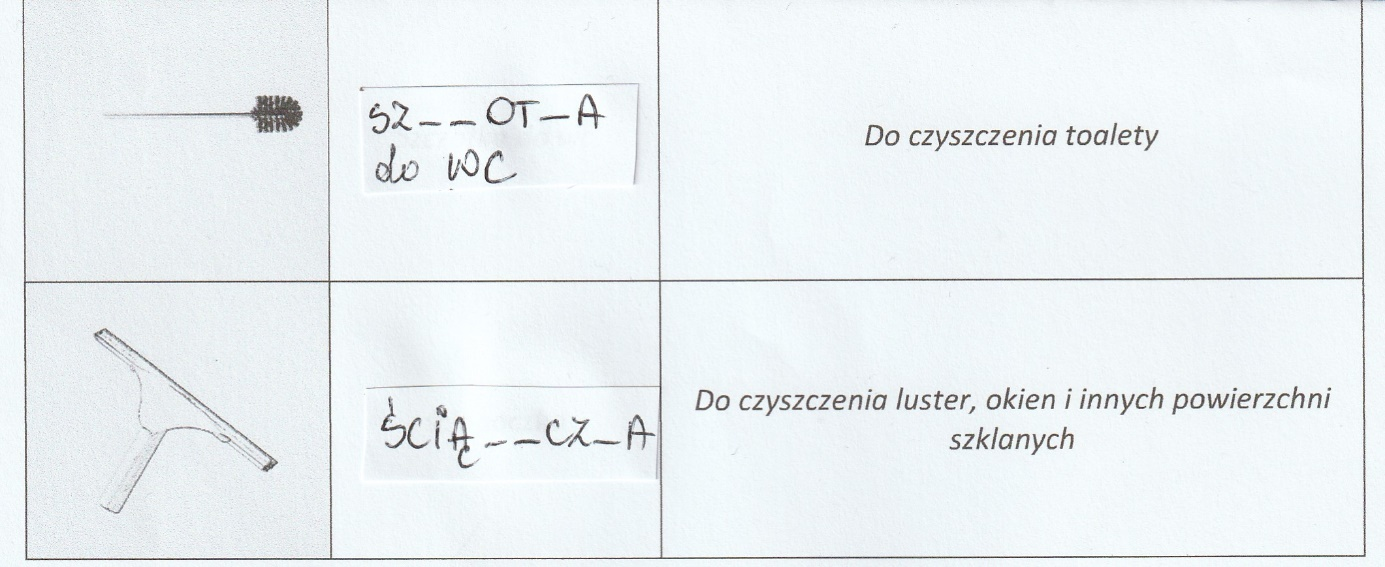 SZ__OT_A
do WC
Do czyszczenia toalety
ŚCIĄ__CZ_A
Do czyszczenia luster, okien i innych powierzchni
szklanych